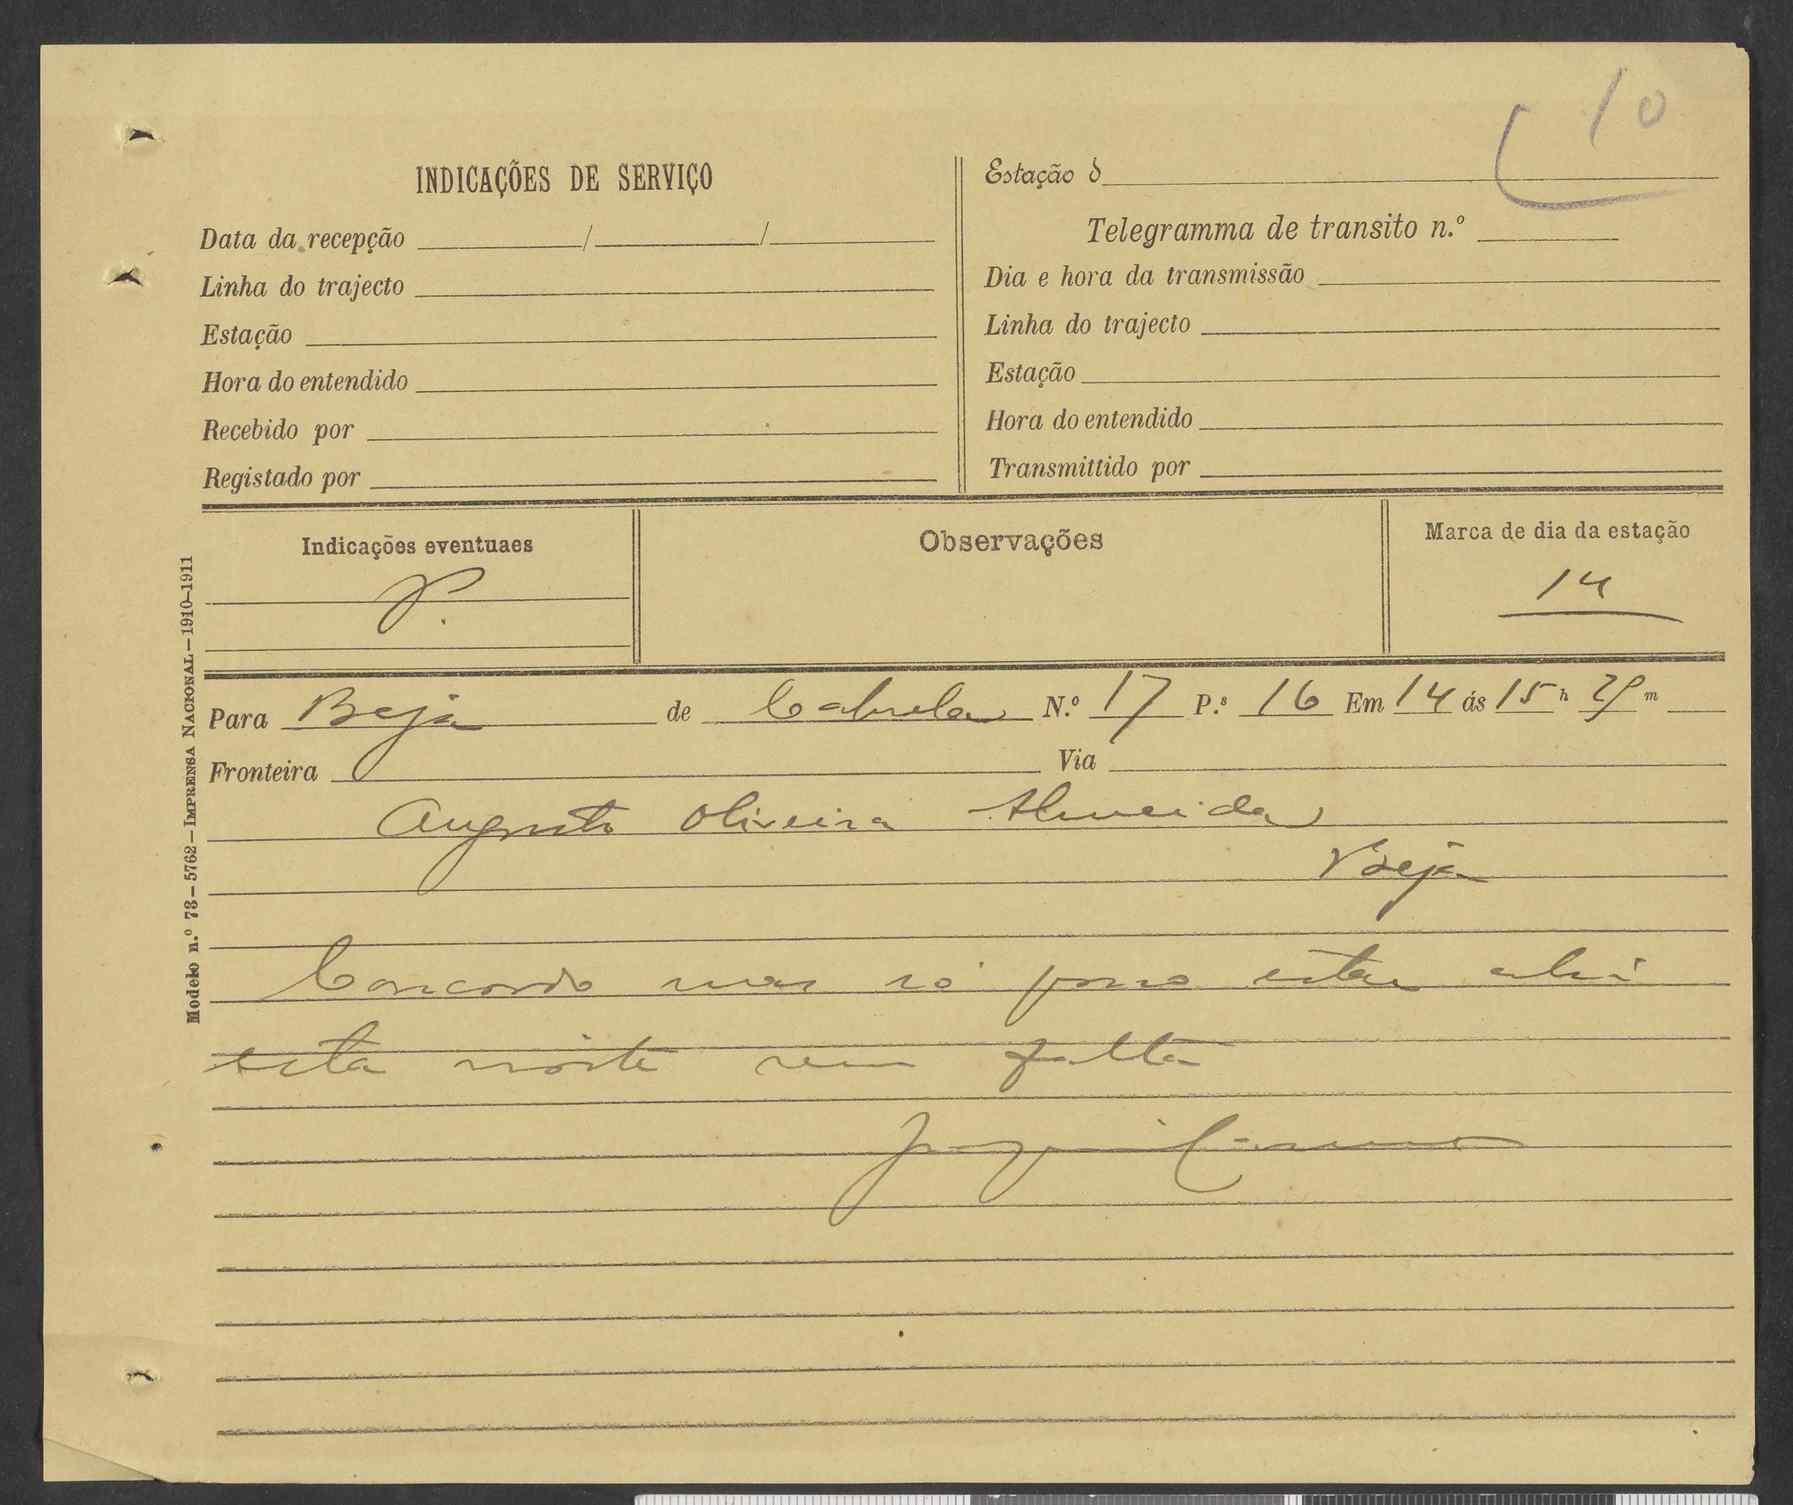 10
INDICAÇÕES DE SERVIÇO
Data da recepção / /
Linha do trajecto
Estação
Hora do entendido
Recebido por
Registado por
Estação d
Telegramma de transito n.º
Dia e hora da transmissão
Linha do trajecto
Estação
Hora do entendido
Transmittido por
Indicações eventuaes
P.
Observações
Marca de dia da estação
14
Para Beja de Cabrela N.º 17 P.s 16 Em 14 ás 15 h m
Fronteira Via
Augusto Oliveira Almeida
Beja
Concordo mas só posso estar ahi
esta noite sem falta
Modelo n.º 73 – 5762 – IMPRENSA NACIONAL – 1910–1911